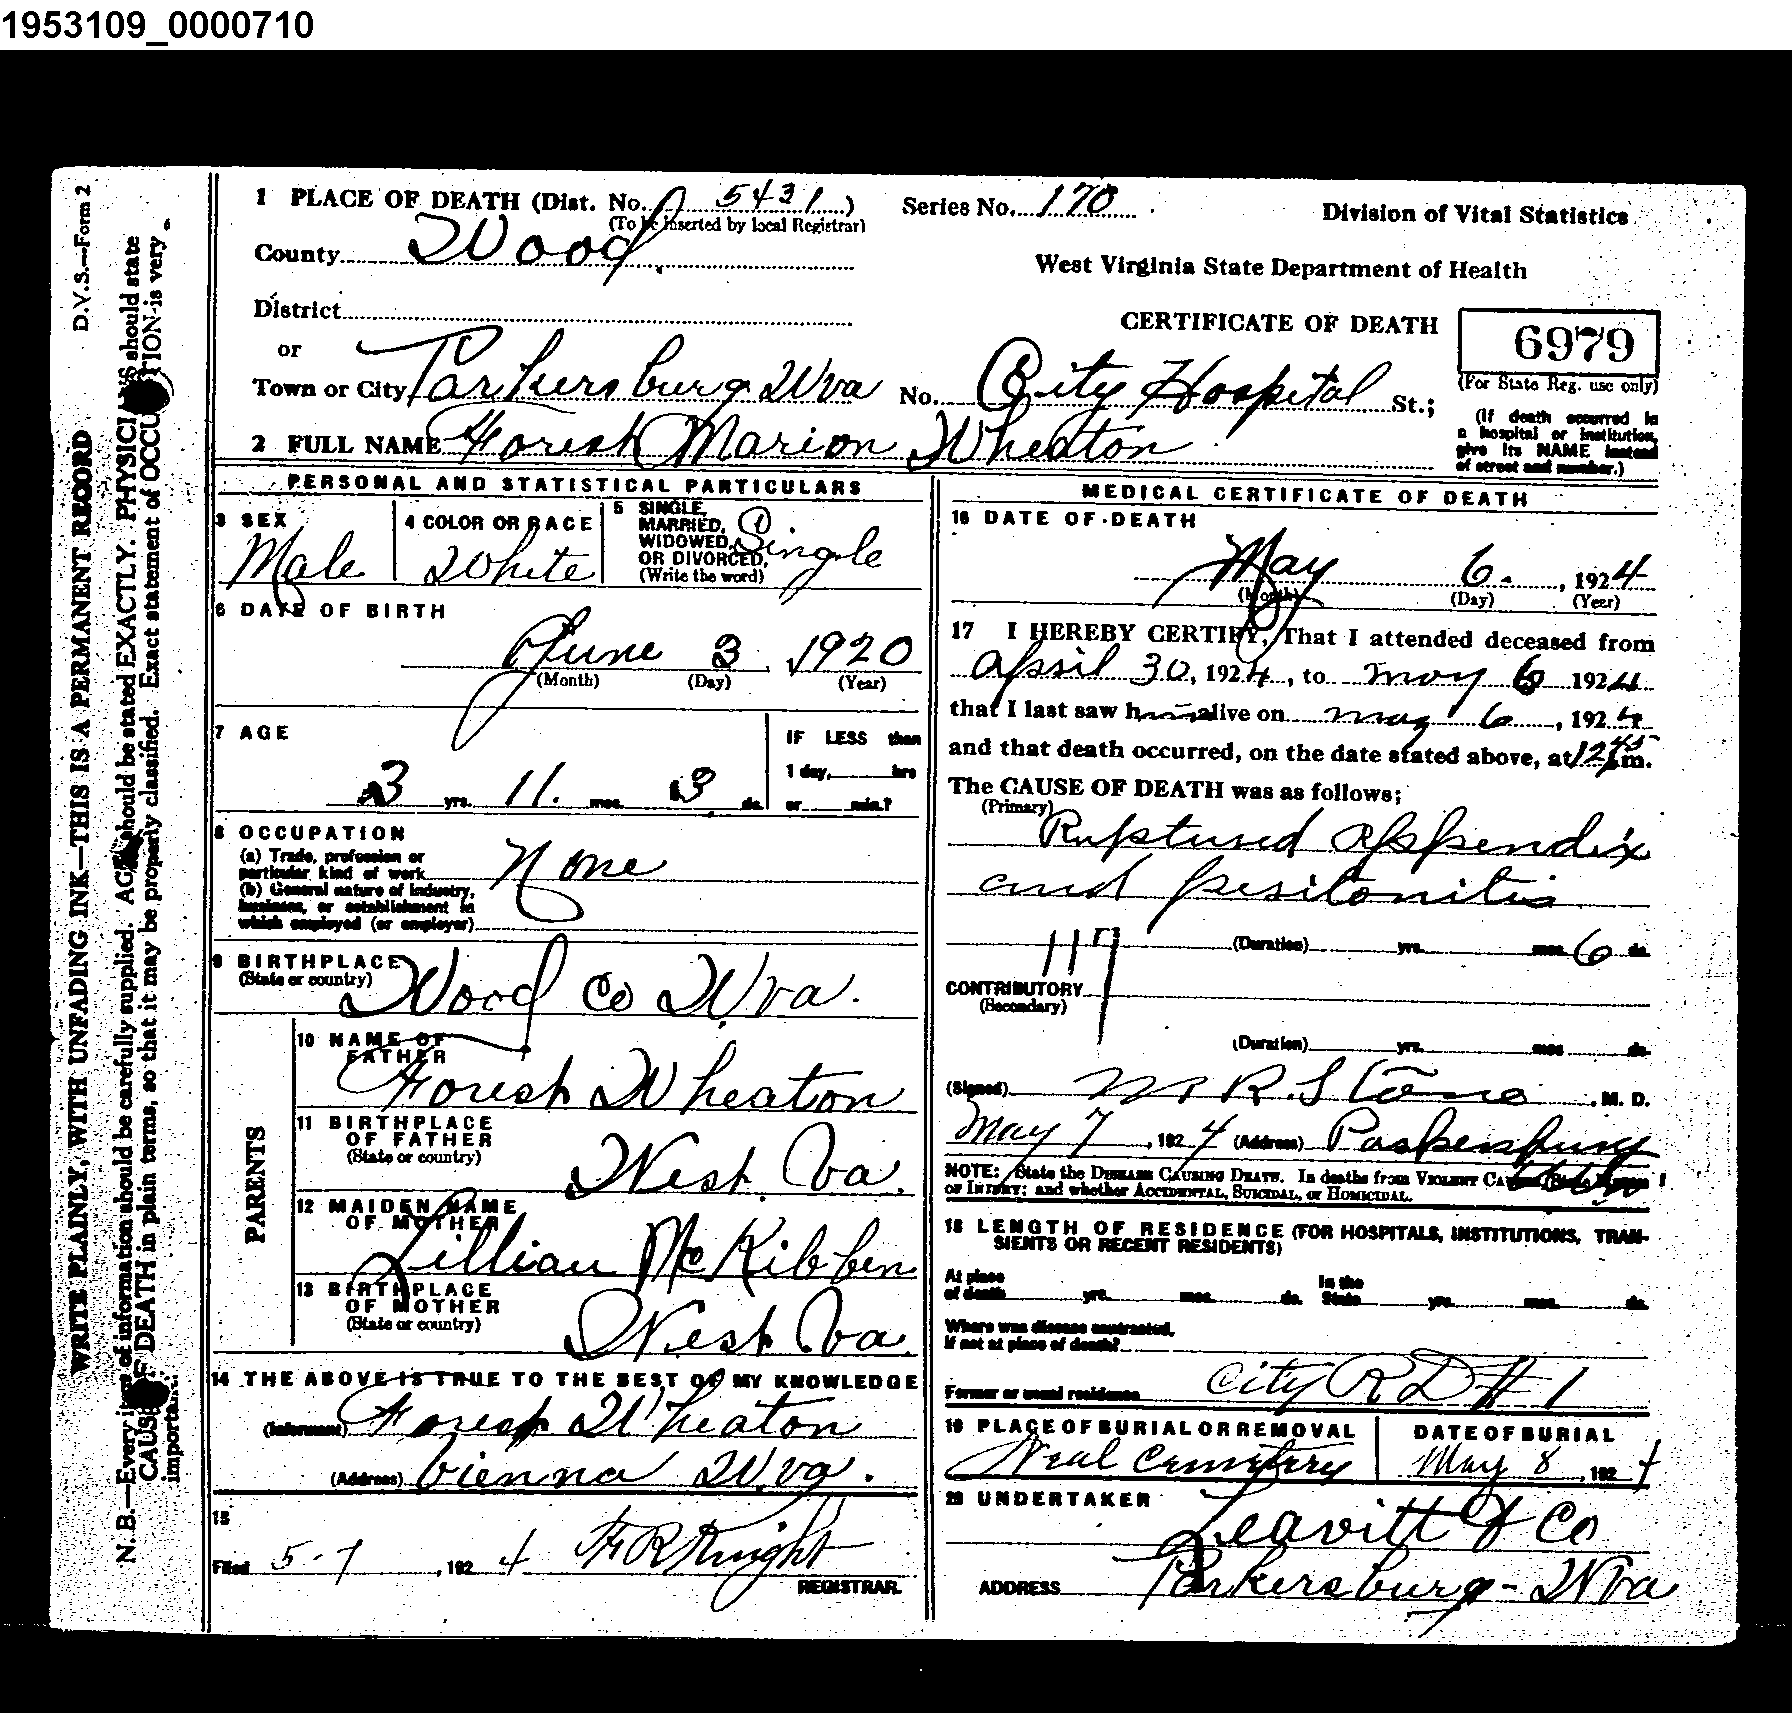 1953109_0000710
D.V.S.—Form 2
WRITE PLAINLY, WITH UNFADING INK—THIS IS A PERMANENT RECORD
N.B.—Every item of information should be carefully supplied. AGE should be stated EXACTLY. PHYSICIANS should state
CAUSE OF DEATH in plain terms, so that it may be properly classified. Exact statement of OCCUPATION is very
important.
1 PLACE OF DEATH (Dist. No. 5431) Series No. 170
(To be inserted by local Registrar)
Division of Vital Statistics
County Wood
West Virginia State Department of Health
District
CERTIFICATE OF DEATH
6979
(For State Reg. use only)
or
Town or City Parkersburg W Va No. City Hospital St.;
(If death occurred in
a hospital or institution,
give its NAME instead
of street and number.)
2 FULL NAME Forest Marion Wheaton
PERSONAL AND STATISTICAL PARTICULARS
3 SEX
Male
4 COLOR OR RACE
White
5 SINGLE,
MARRIED,
WIDOWED,
OR DIVORCED,
(Write the word)
Single
6 DATE OF BIRTH
June 3 1920
(Month) (Day) (Year)
7 AGE
3 yrs. 11 mos. 3 ds.
IF LESS than
1 day, hrs
or min.?
8 OCCUPATION
(a) Trade, profession or
particular kind of work
(b) General nature of industry,
business, or establishment in
which employed (or employer)
None
9 BIRTHPLACE
(State or country)
Wood Co W Va.
PARENTS
10 NAME OF
FATHER
Forest Wheaton
11 BIRTHPLACE
OF FATHER
(State or country)
West. Va.
12 MAIDEN NAME
OF MOTHER
Lillian McKibben
13 BIRTHPLACE
OF MOTHER
(State or country)
West. Va.
14 THE ABOVE IS TRUE TO THE BEST OF MY KNOWLEDGE
(Informant) Forest Wheaton
(Address) Vienna W. Va.
15
Filed 5-7, 1924 F R Knight
REGISTRAR.
MEDICAL CERTIFICATE OF DEATH
16 DATE OF DEATH
May 6., 1924
(Month) (Day) (Year)
17 I HEREBY CERTIFY, That I attended deceased from
April 30, 1924, to May 6 1924
that I last saw him alive on May 6, 1924
and that death occurred, on the date stated above, at 12 45 m.
The CAUSE OF DEATH was as follows;
(Primary)
Ruptured appendix
and peritonitis
117
(Duration) yrs. mos. 6 ds.
CONTRIBUTORY
(Secondary)
(Duration) yrs. mos. ds.
(Signed) Stone, M. D.
May 7, 1924 (Address) Parkersburg
NOTE: State the DISEASE CAUSING DEATH. In deaths from VIOLENT
OR INJURY; and whether ACCIDENTAL, SUICIDAL, or HOMICIDAL.
18 LENGTH OF RESIDENCE (FOR HOSPITALS, INSTITUTIONS, TRAN-
SIENTS OR RECENT RESIDENTS)
At place
of death yrs. mos. ds.
In the
State yrs. mos. ds.
Where was disease contracted,
if not at place of death?
Former or usual residence City R D # 1
19 PLACE OF BURIAL OR REMOVAL
Neal Cemetery
DATE OF BURIAL
May 8, 1924
20 UNDERTAKER
Leavitt & Co
ADDRESS Parkersburg - W Va